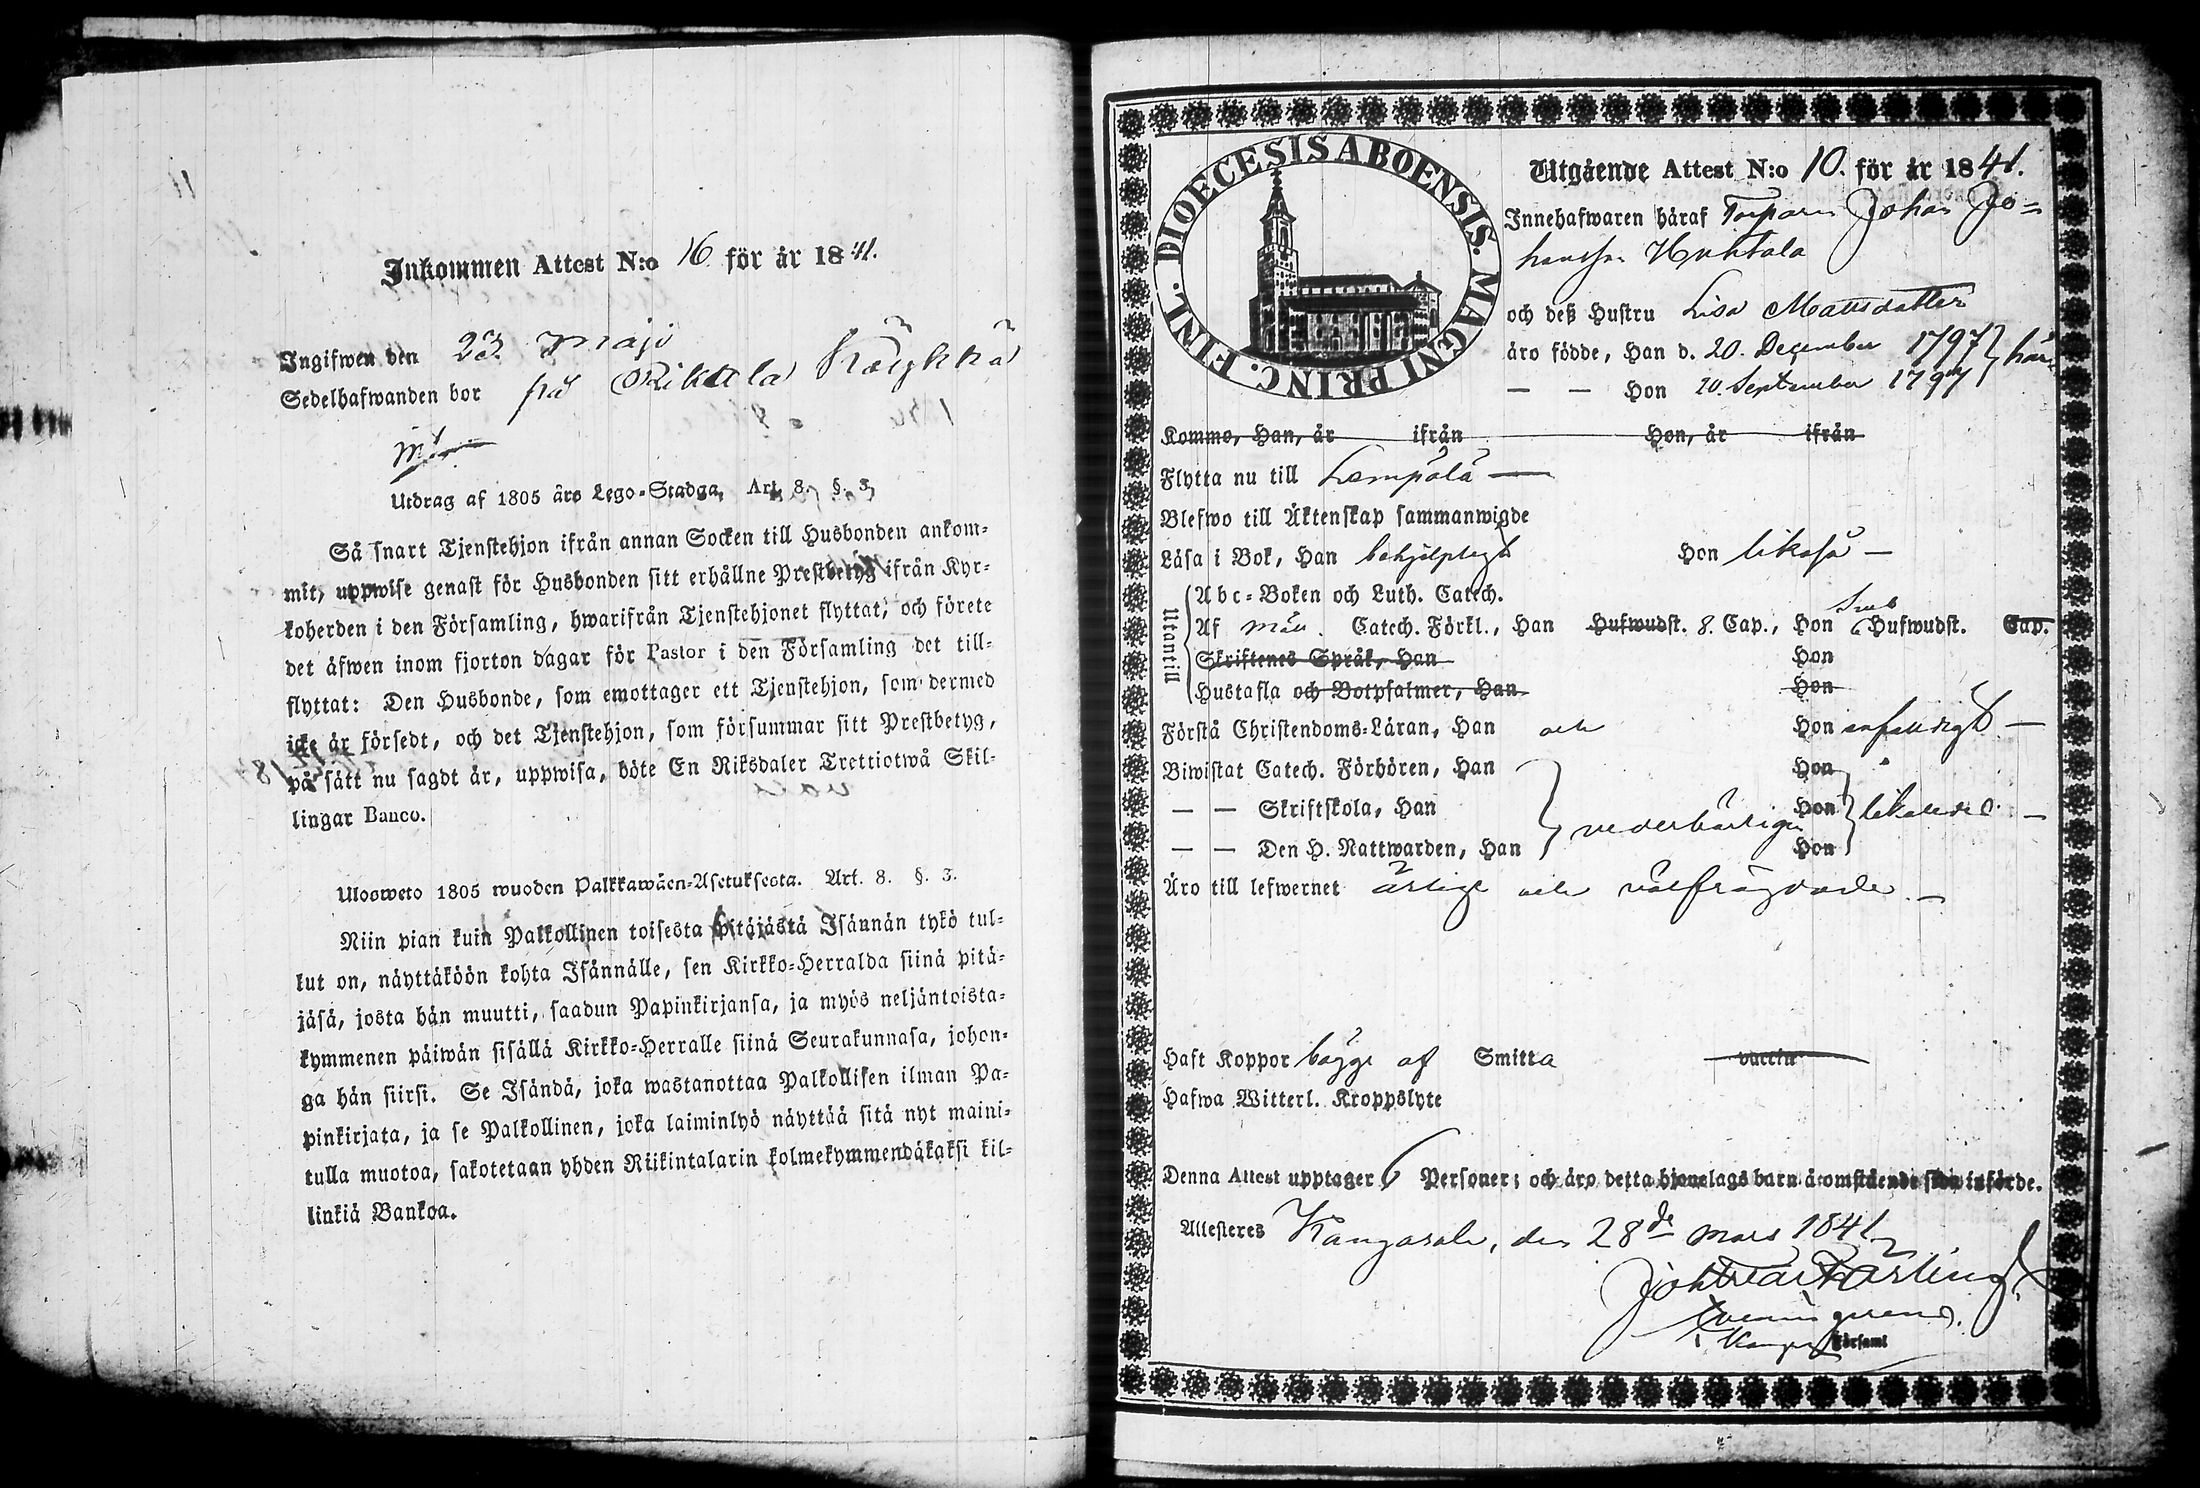 Inkommen Attest N:o 16 för år 1841.
Ingifwen den 23 Maji
Sedelhafwanden bor på Rikala
Utdrag af 1805 års Lego-Stadga, Art. 8. §. 3.
Så snart Tjenstehjon ifrån annan Socken till Husbonden ankom-
mit, uppwise genast för Husbonden sitt erhållne Prestbetyg ifrån Kyr-
koherden i den Församling, hwarifrån Tjenstehjonet flyttat, och förete
det äfwen inom fjorton dagar för Pastor i den Församling det till-
flyttat: Den Husbonde, som emottager ett Tjenstehjon, som dermed
icke är försedt, och det Tjenstehjon, som försummar sitt Prestbetyg,
på sätt nu sagdt är, uppwisa, böte En Riksdaler Trettiotwå Skil-
lingar Banco.
Ulosweto 1805 wuoden Palkkawäen-Asetuksesta. Art. 8. §. 3.
Niin pian kuin Palkollinen toisesta pitäjästä Isännän tykö tul-
lut on, näyttäköön kohta Isännälle, sen Kirkko-Herralda siinä pitä-
jäsä, josta hän muutti, saadun Papinkirjansa, ja myös neljäntoista-
kymmenen päiwän sisällä Kirkko-Herralle siinä Seurakunnasa, johon-
ga hän siirsi. Se Isändä, joka wastanottaa Palkollisen ilman Pa-
pinkirjata, ja se Palkollinen, joka laiminlyö näyttää sitä nyt maini-
tulla muotoa, sakotetaan yhden Riikintalarin kolmekymmendäkaksi kil-
linkiä Bankoa.
DIOECESIS ABOENSIS. MAGNI PRINC. FINL.
Utgående Attest N:o 10. för år 1841.
Innehafwaren häraf Torparn Johan Jo=
hansson Huhtala
och deß Hustru Lisa Mattsdotter
äro födde, Han d. 20. December 1797 här
— — Hon 20. September 1797
Komne, Han, år ifrån Hon, år ifrån
Flytta nu till Lempälä —
Blefwo till Äktenskap sammanwigde
Läsa i Bok, Han behjelpligt Hon likaså —
Utantill
Abc-Boken och Luth. Catech.
Af Catech. Förkl., Han Hufwudst. 8. Cap., Hon Hufwudst. Cap.
Skriftenes Språk, Han Hon
Hustafla och Botpsalmer, Han Hon
Förstå Christendoms-Läran, Han och Hon enfaldigt —
Biwistat Catech. Förhören, Han Hon
— — Skriftskola, Han Hon
vederbörligen likaledes —
— — Den H. Nattwarden, Han Hon
Äro till lefwernet ärlige och välfrägdade. —
Haft Koppor bägge af Smitta vaccin
Hafwa Witterl. Kroppslyte
Denna Attest upptager 6 Personer; och äro detta hjonelags barn å omstående sida införde.
Attesteres Kangasala, den 28de Mars 1841
i Församl